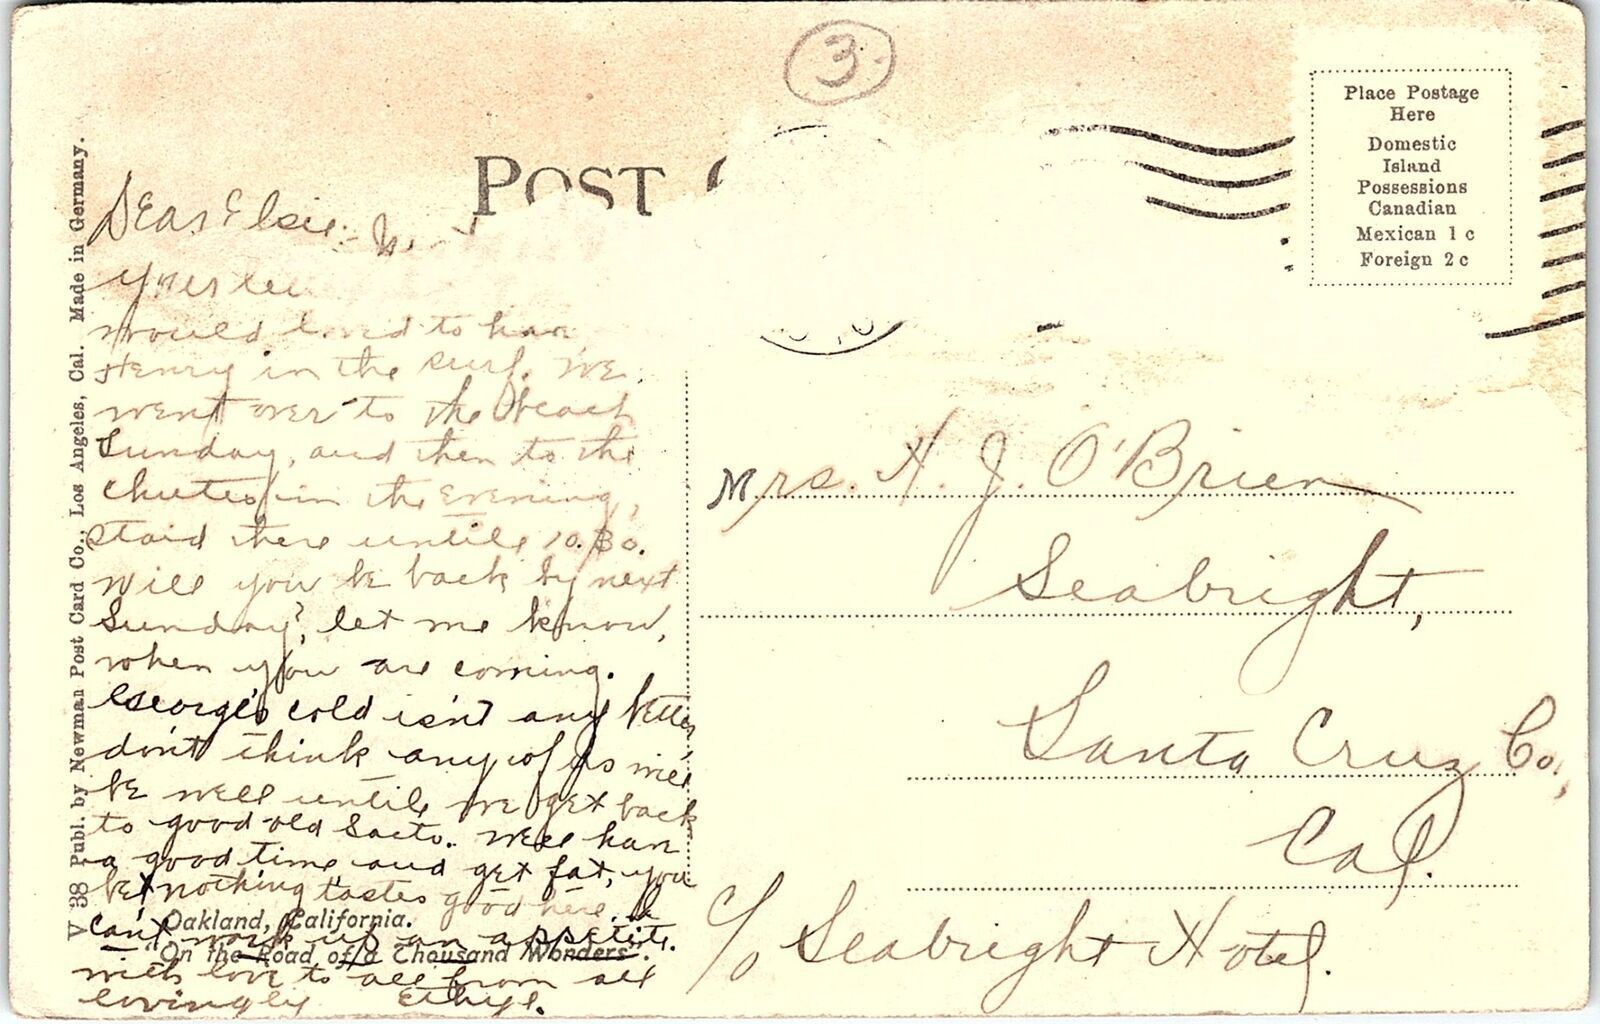 3
POST
Place Postage
Here
Domestic
Island
Possessions
Canadian
Mexican 1 c
Foreign 2 c
V 38 Publ. by Newman Post Card Co., Los Angeles, Cal. Made in Germany.
Dear Elsie:-
would loved to have
Henry in the surf. We
went over to the beach
Sunday, and then to the
chutes in the evening,
staid there until 10.30.
Will you be back by next
Sunday? let me know,
when you are coming.
George's cold isn't any better
don't think any of us will
be well until we get back
to good old Sacto. Well have
a good time and get fat, you
bet nothing tastes good here
can't work up an appetite.
with love to all from all
lovingly Ethyl.
Oakland, California.
"On the Road of a Thousand Wonders".
Mrs. H. J. O'Brien
Seabright,
Santa Cruz Co.,
Cal.
c/o Seabright Hotel.